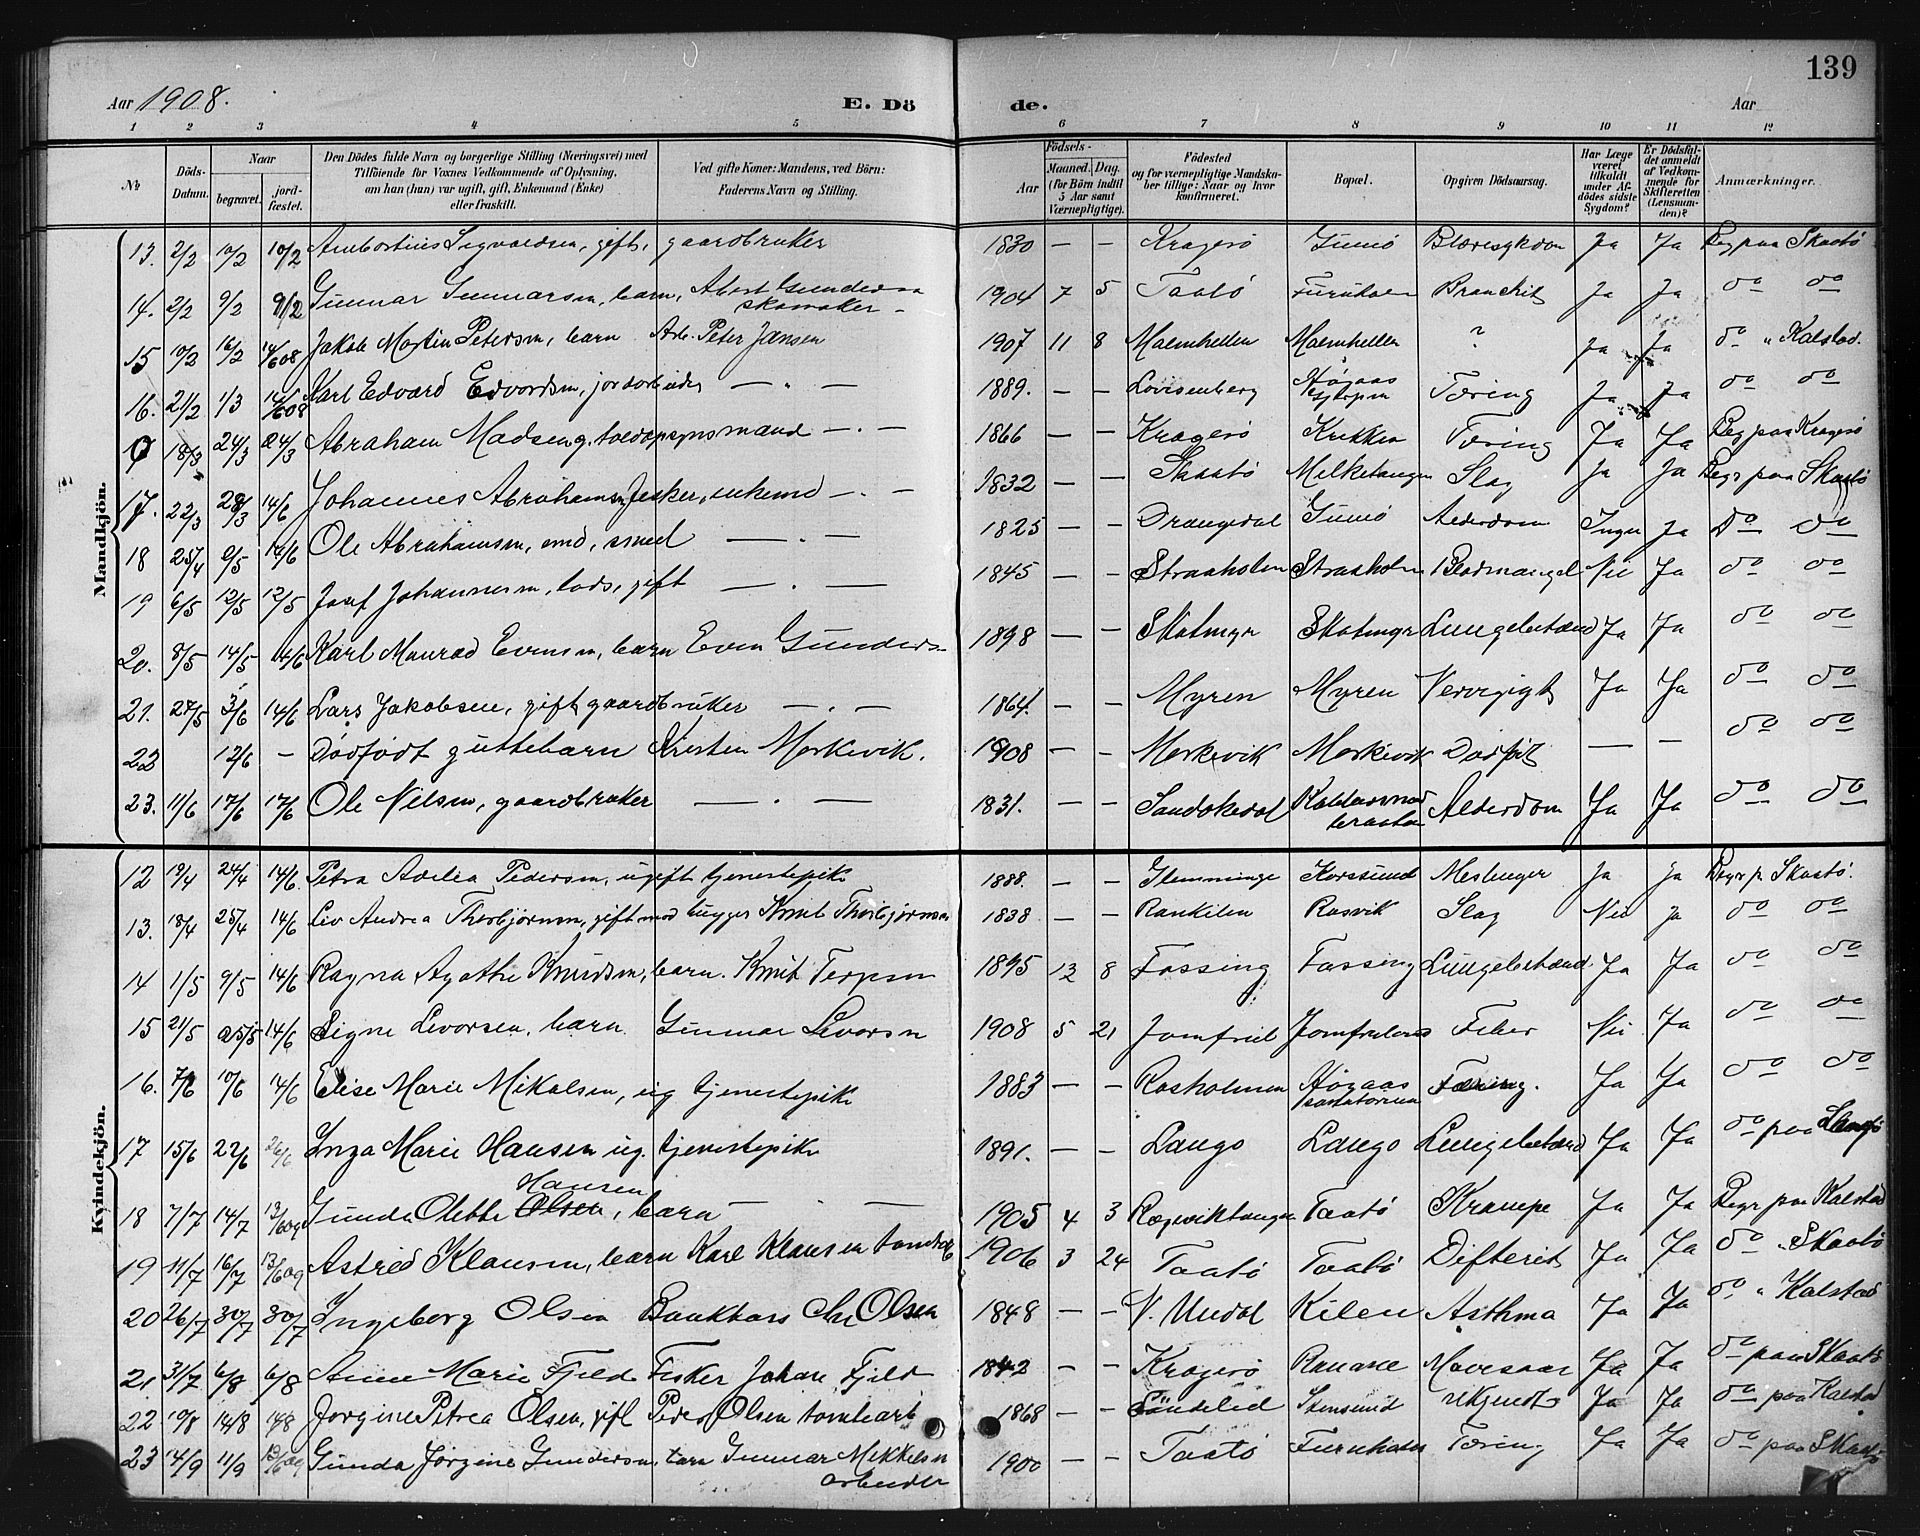 139
Aar 1908. E. Dö de. Aar
1 2 3 4 5 6 7 8 9 10 11 12
№ Döds-Datum. Naar begravet. jordfæstet. Den Dödes fulde Navn og borgerlige Stilling (Næringsvei) med Tilföiende for Voxnes Vedkommende af Oplysning, om han (hun) var ugift, gift, Enkemand (Enke) eller fraskilt. Ved gifte Koner: Mandens, ved Börn: Faderens Navn og Stilling. Födsels- Aar Maaned. Dag. (for Börn indtil 5 Aar samt Værnepligtige). Födested og for værnepligtige Mandskaber tillige: Naar og hvor konfirmeret. Bopæl. Opgiven Dödsaarsag. Har Læge været tilkaldt under Afdödes sidste Sygdom? Er Dödsfaldet anmeldt af Vedkommende for Skifteretten (Lensmanden)? Anmærkninger.
Mandkjön.
13. 2/2 10/2 10/2 Sigvaldsen, gift, gaardbruker 1830 — — Kragerö Gumö Blæresykdom Ja Ja Beg paa Skaatö
14. 2/2 9/2 9/2 Gunnar Gunnarsen, barn, Gundersen skomaker 1904 7 5 Taatö Furuholmen Bronchit Ja Ja do do
15 10/2 16/2 14/6 08 Jakob Martin Petersen, barn Arb. Peter Jansen 1907 11 8 Malmhellen Malmhellen ? Ja Ja do " Kalstad.
16. 21/2 1/3 14/6 08 Karl Edvard Edvardsen, jordarbeider — " — 1889. — — Lovisenberg Högaas Tæring Ja Ja do do
18/3 24/3 24/3 Abraham Madsen g. toldopsynsmand — " — 1866 — — Kragerö Krikken Tæring Ja Ja Beg paa Kragerö
17. 22/3 28/3 14/6 Johannes Abrahamsen, fisker, enkemd — " — 1832 — — Skaatö Milketangen Slag Ja Ja Begr paa Skaatö
18 25/4 2/5 14/6 Ole Abrahamsen, emd, smed — " — 1825 — — Drangedal Gumö Alderdom Ingen Ja do do
19 6/5 12/5 12/5 Josef Johannesen, lods, gift — " — 1845 — — Straaholmen Straaholmen Blodmangel Nei Ja do do
20. 8/5 14/5 14/6 Karl Monrad Evensen, barn Even Gundersen 1898 — — Skotmyr Skotmyr Lungebetænd Ja Ja do do
21. 27/5 3/6 14/6 Lars Jakobsen, gift gaardbruker — " — 1864. — — Myren Myren Nervegigt Ja Ja do do
22 12/6 — Dödfödt guttebarn Kresten Morkevik. 1908 — — Morkevik Morkevik Dödföt — — do do
23. 11/6 17/6 17/6 Ole Nilsen, gaardbruker — " — 1831. — — Sandökedal Alderdom Ja Ja do do
Kvindekjön.
12 19/4 24/4 14/6. Petra Adelia Pedersen, ugift tjenestepike 1888. — — Glemminge Korssund Meslinger Ja Ja Begr p. Skaatö.
13. 18/4 25/4 14/6 Liv Andrea Thorbjörnsen, gift med bygger Knut Thorbjörnsen 1838 — — Rankilen Rosvik Slag Nei Ja do do
14 1/5 9/5 14/6 Ragna Agathe Knudsen, barn. Knut Terpsen 1895 12 8 Fossing Fossing Lungebetænd Ja Ja do do
15 21/5 25/5 14/6 Signe Levorsen, barn Gunnar Levorsen 1908 5 21 Jomfrul Jomfruland Feber Nei Ja do do
16. 7/6 10/6 14/6 Elise Marie Mikalsen, ug tjenestepike 1883 — — Rosholmen Högaas sanatorium Tæring. Ja Ja do do
17 15/6 22/6 26/6 Inga Marie Hansen ug. tjenestepike 1891. — — Langö Langö Lungebetænd Ja Ja do paa Langö
18 7/7 14/7 13/6 09 Gunda Olette Olsen Hansen, barn — — 1905 4 3 Rægeviktangen Taatö Krampe Ja Ja Begr paa Kalstad
19 11/7 16/7 13/6 09 Astrid Klausen, barn Karl Klausen tomtarb 1906 3 24 Taatö Taatö Difterit Ja Ja do " Skaatö
20 26/7 30/7 30/7 Ingeborg Olsen Bankkass Chr Olsen 1848 — — N. Undal Kilen Asthma Ja Ja do " Kalstad
21 31/7 6/8 6/8 Anne Marie Fjeld Fisker Johan Fjeld 1842 — — Kragerö Ranane Mavesaar Ja Ja do paa Skaatö
22 10/8 14/8 14/8 Jörgine Petrea Olsen, gift Peder Olsen tomtearb 1868 — — Söndeled Stensund ukjendt Ja Ja do paa Kalstad
23 4/9 11/9 13/6 09 Gunda Jörgine Gundersen, barn Gunnar Mikkelsen arbeider 1900 — — Taatö Furuholmen Tæring Ja Ja do paa Skaatö